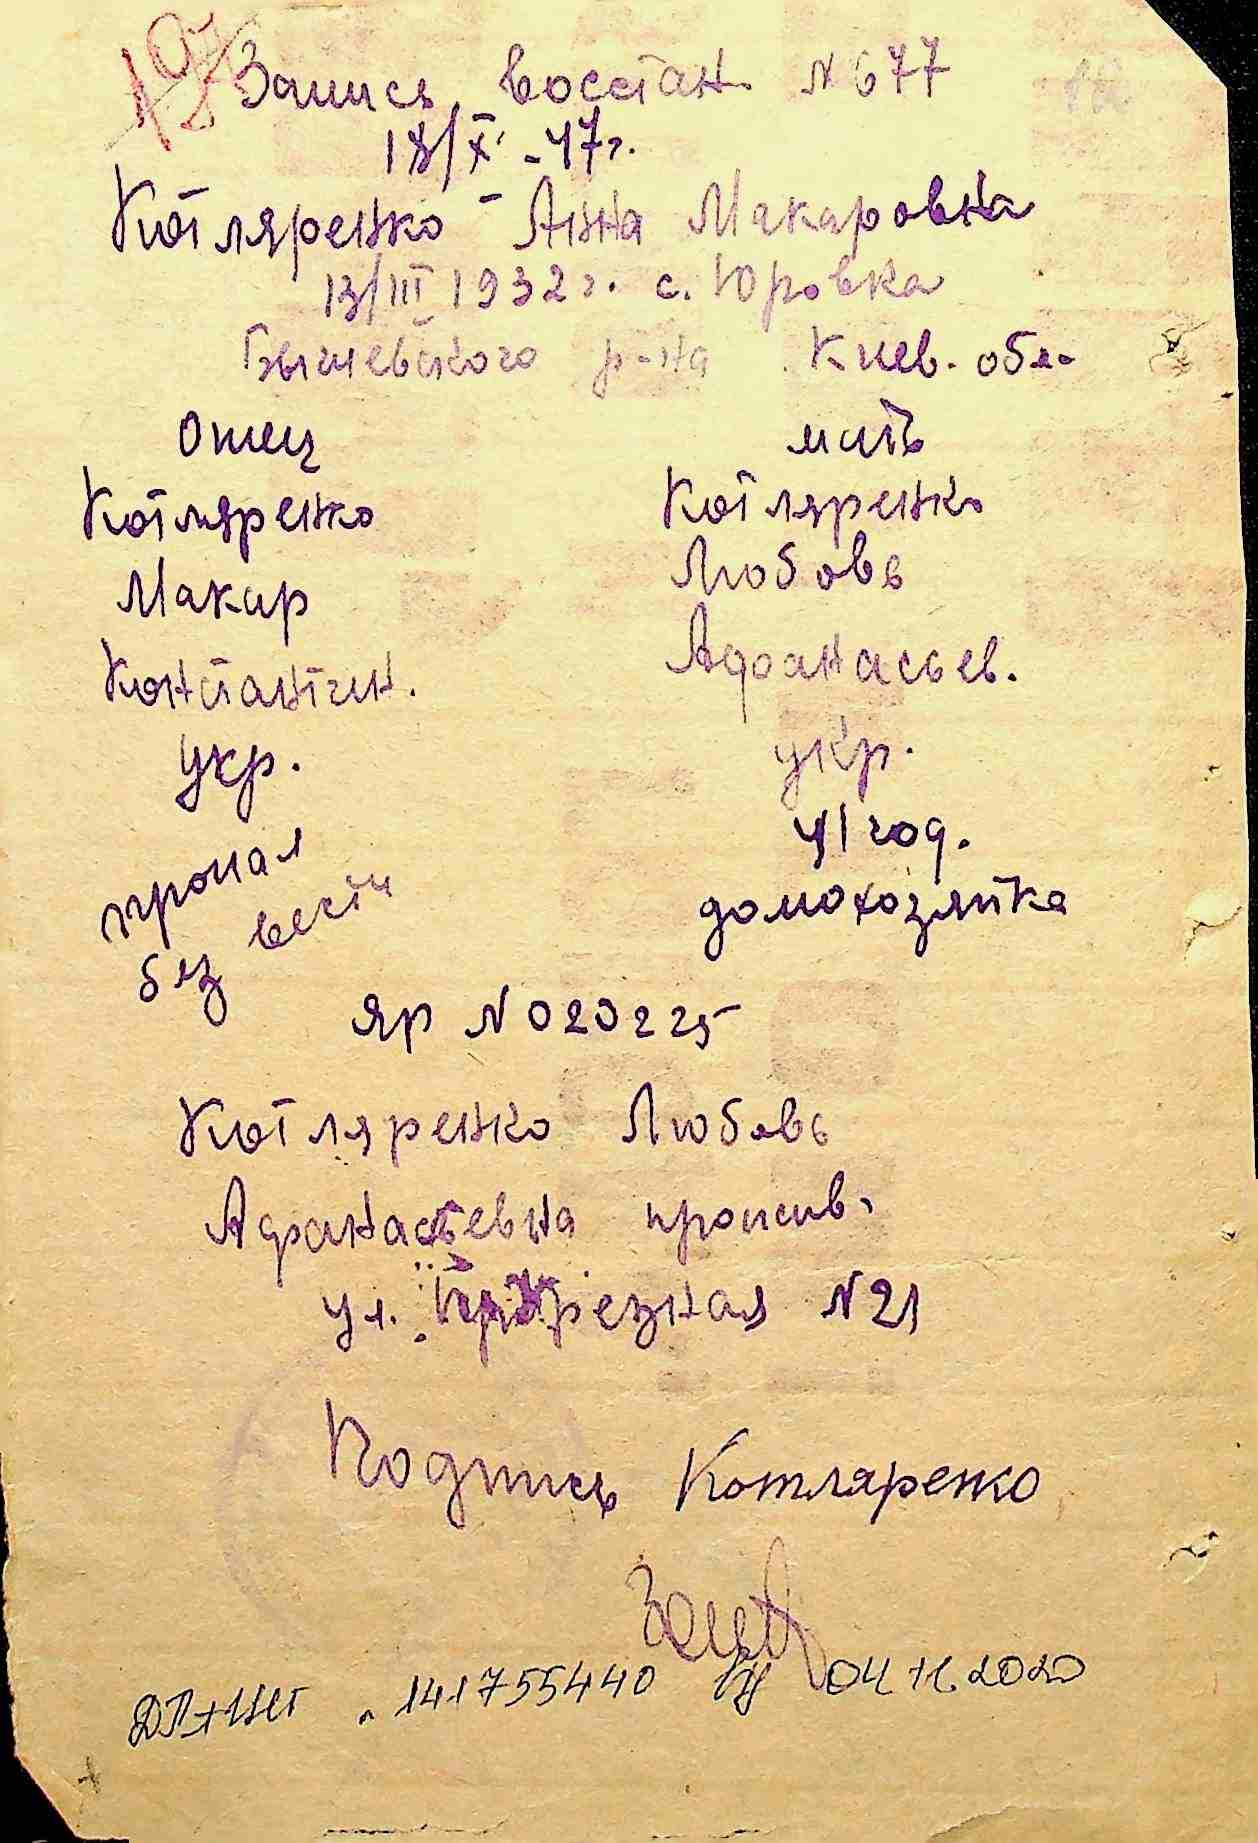 Запись восстан. N 677
18/X - 47 г.
Котляренко - Анна Макаровна
13/III 1932 г. с. Юровка
р-на Киев. обл.
Отец мать
Котляренко Котляренко
Макар Любовь
Константин. Афанасьев.
укр. укр.
пропал 41 год.
без вести домохозяйка
ЯР N 020225
Котляренко Любовь
Афанасьевна прожив.
ул. N 21
Подпись Котляренко
141755440 04 2020